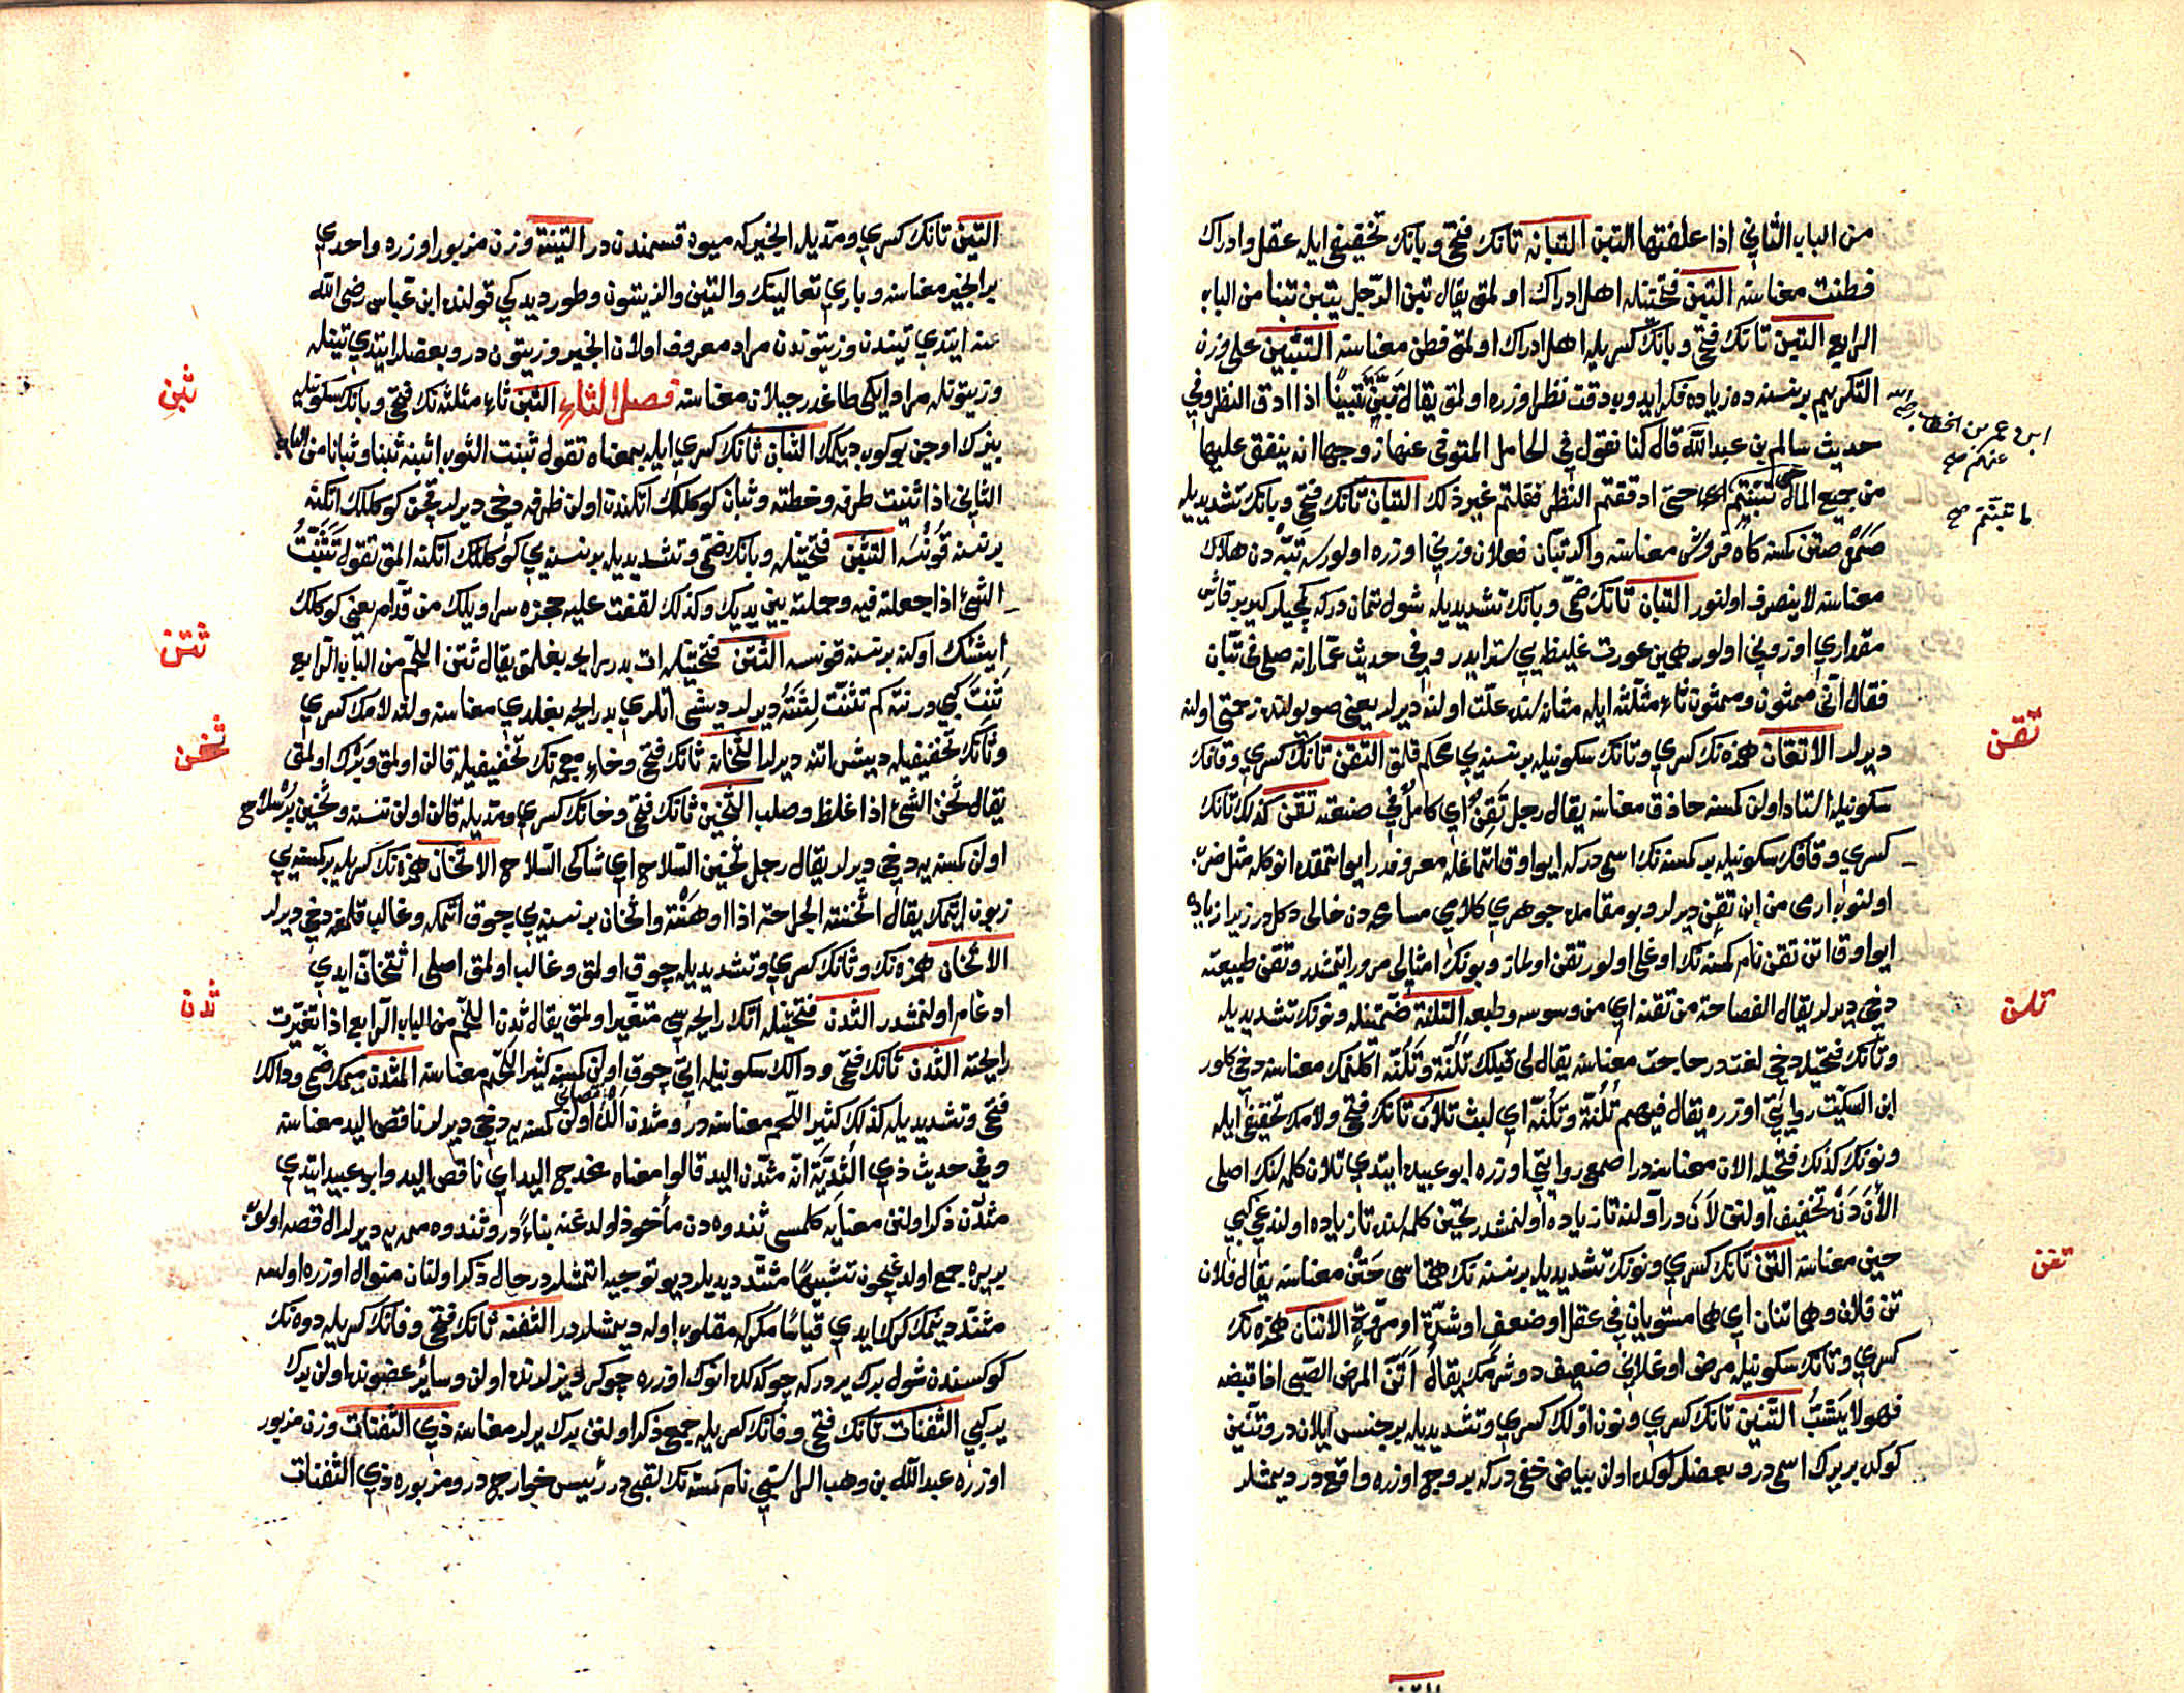 من الباب الثاني اذا علفتها التبن التبانه تانك فتحى وبانك تخفيفى ايله عقل وادراك
فطنت معناسنه التبن فتحتينله اهل ادراك اولمق يقال تبن الرّجل يتبن تبنا من الباب
الرابع التبن تانك فتحى وبانك كسريله اهل ادراك اولمق فطن معناسنه التتبين على وزن
التكريم برنسنه ده زياده فكر ايدوب دقت نظر اوزره اولمق يقال تبّن تتبينًا اذا ادق النظر وفي
حديث سالم بن عبد الله قال كنا نقول في الحامل المتوفى عنها زوجها انه ينفق عليها
من جميع المال حتى تبنتم اى حتى ادققتم النظر فقلتم غير ذلك التبان تانك فتحى وبانك تشديديله
صمن صتن كمسنه كاه فروش معناسنه واكر تبّان فعلان وزنى اوزره اولورسه تبّ دن هلاك
معناسنه لا ينصرف اولنور التبان تانك ضمى وبانك تشديديله شول تماندركه كميجيلر كير بر قارش
مقدارى اوزونى اولور همين عورت غليظه يى ستر ايدر وفى حديث عمّار انه صلى في تبّان
فقال انّى ممثون وممثون ثاء مثلثه ايله مثانه سنده علّت اولنه ديرلر يعنى صو يولنده زحمتى اولنه
ديرلر الاتقان همزه نك كسرى وتانك سكونيله برنسنه يى محكم قلمق التقن تانك كسرى وقافك
سكونيله استاد اولن كمسنه حاذق معناسنه يقال رجل تقن اى كامل في صنعته تقن كذلك تانك
كسرى وقافك سكونيله بر كمسنه نك اسمى دركه ايو اوق اتماغله معروفدر ايو اتمقده انوكله مثل ضرب
اولنوب ارمى من ابن تقن ديرلر وبو مقامده جوهرى كلامى مسامحه دن خالى دكلدر زيرا
ايو اوق اتن تقن نام كمسنه نك اوغلى اولور تقن اولماز وبونك امثالى مرور ايتمشدر وتقن طبيعته
دخى ديرلر يقال الفصاحة من تقنه اى من سوسه وطبعه التلنة ضمّتينله ونونك تشديديله
وتانك فتحيله دخى لغتدر حاجت معناسنه يقال لى قبلك تلنّة وتلنّة اكلنمك معناسنه دخى كلور
ابن السكّيت روايتى اوزره يقال فيهم تلنّة وتلنّة اى لبث تلان تانك فتحى ولامك تخفيفى ايله
ونونك كذلك فتحيله الان معناسنه در اصمعى روايتى اوزره ابو عبيده ايتدى تلان كلمه سنك اصلى
الأن دن تخفيف اولنن لان در اولنه تا زياده اولنمشدر تحين كلمه سنده تا زياده اولندغى كبى
حين معناسنه التنّ تانك كسرى ونونك تشديديله برنسنه نك همتاسى حتن معناسنه يقال فلان
تن فلان وهما تنان اى هما مستويان في عقل او ضعف او شدّة او مروّة الاتنان همزه نك
كسرى وتانك سكونيله مرض اوغلانى ضعيف دوشرمك يقال اتنّ المرض الصبى اذا قبضه
فهو لا يشبّ التنين تانك كسرى ونون اوّلك كسرى وتشديديله بر جنس ييلان در وتنين
كوكده بر برك اسمى در وبعضلر كوكده اولن بياض خفى دركه بر وجه اوزره واقع در ديمشلر
ابن عمر بن الخطاب رضى الله
عنهم صح
ما تبنتم صح
تقن
تلن
تنن
التين تانك كسرى ومدّيله انجيركه ميوه قسمندن در التينة وزن مزبور اوزره واحدى
بر انجير معناسنه وبارى تعالينك والتين والزيتون وطور ديدكى قولنده ابن عباس رضى الله
عنه ايتدى تيندن وزيتوندن مراد معروف اولان انجير وزيتون در وبعضلر ايتدى تينله
وزيتونله مراد ايكى طاغدر جبلان معناسنه فصل الثاء الثبن ثاء مثلثه نك فتحى وبانك سكونيله
بزك اوجن بوكوب ديكمك الثبان ثانك كسرى ايله بمعناه تقول ثبنت الثوب اثبنه ثبنا وثبانا من الباب
الثانى اذا ثنيت طرفه وخطته وثبان كوكللك اتكندن اولن ظرفه دخى ديرلر كوكللك اتكنه
برنسنه قونسه التثبن فتحتينله وبانك ضمى وتشديديله برنسنه يى كوكللك اتكنه المق تقول تثبّنت
الشئ اذا جعلته فيه وحملته بين يديك وكذلك لففت عليه حجزة سراويلك من قدّام يعنى كوكلك
ايتشك اوكنه برنسنه قونسه الثتن فتحتينله ات بد رايحه بغلمق يقال ثتن اللحم من الباب الرابع
نتن كبى در نته كم تثنت لثته ديرلر ديشى اتلرى بد رايحه بغلدى معناسنه ولثه لامك كسرى
وثانك تخفيفيله ديش اتنه ديرلر الثخانه ثانك فتحى وخاء معجمه نك تخفيفيله قالن اولمق وبرك اولمق
يقال ثخن الشئ اذا غلظ وصلب الثخين ثانك فتحى وخانك كسرى ومدّيله قالن اولن نسنه وثخين بر سلاح
اولن كمسنه يه دخى ديرلر يقال رجل ثخين السلاح اى شاكى السلاح الاثخان همزه نك كسريله بر كمسنه يى
زبون ايتمك يقال اثخنته الجراحة اذا اوهنته واثخان برنسنه يى چوق اتمكه وغالب قلمغه دخى ديرلر
الاثخان همزه نك وثانك كسرى وتشديديله چوق اولمق وغالب اولمق اصلى اثتخان ايدى
ادغام اولنمشدر الثدن فتحتينله اتك رايحه سى متغيّر اولمق يقال ثدن اللحم من الباب الرابع اذا تغيّرت
رايحته الثدن ثانك فتحى ودالك سكونيله اتى چوق اولن كمسنه كثير اللحم معناسنه المثدن ميمك ضمى ودالك
فتحى وتشديديله كذلك كثير اللحم معناسنه در ومثدن الى اولن كمسنه يه دخى ديرلر ناقص اليد معناسنه
وفي حديث ذى الثديّة انّه مثدّن اليد قالوا معناه مخدج اليد اى ناقص اليد وابو عبيد ايتدى
مثدّن ذكر اولنن معنايه كلمسى ثندوه دن مأخوذ اولدغنه بناءً در وثندوه ممه يه ديرلر ال قصه اولوب
بر يره جمع اولدغيچون تشبيهًا مثدّن ديديلر ديو توجيه اتمشلر در حال ذكر اولنان منوال اوزره اولسه
مثنّد ديمك كرك ايدى قياسًا مكر كه مقلوب اوله ديمشلر در الثفنه ثانك فتحى وفانك كسريله دوه نك
كوكسندن شول يرلر در كه چوكدكده انوك اوزره چوكر ديزلرنده اولن وسائر عضونده اولن يرك
ير كبى الثفنات ثانك فتحى وفانك كسريله جمع ذكر اولنن يرك يرلر معناسنه ذى الثفنات وزن مزبور
اوزره عبد الله بن وهب الراسبى نام كمسنه نك لقبى در رئيس خوارج در ومزبوره ذى الثفنات
ثبن
ثتن
ثخن
ثدن